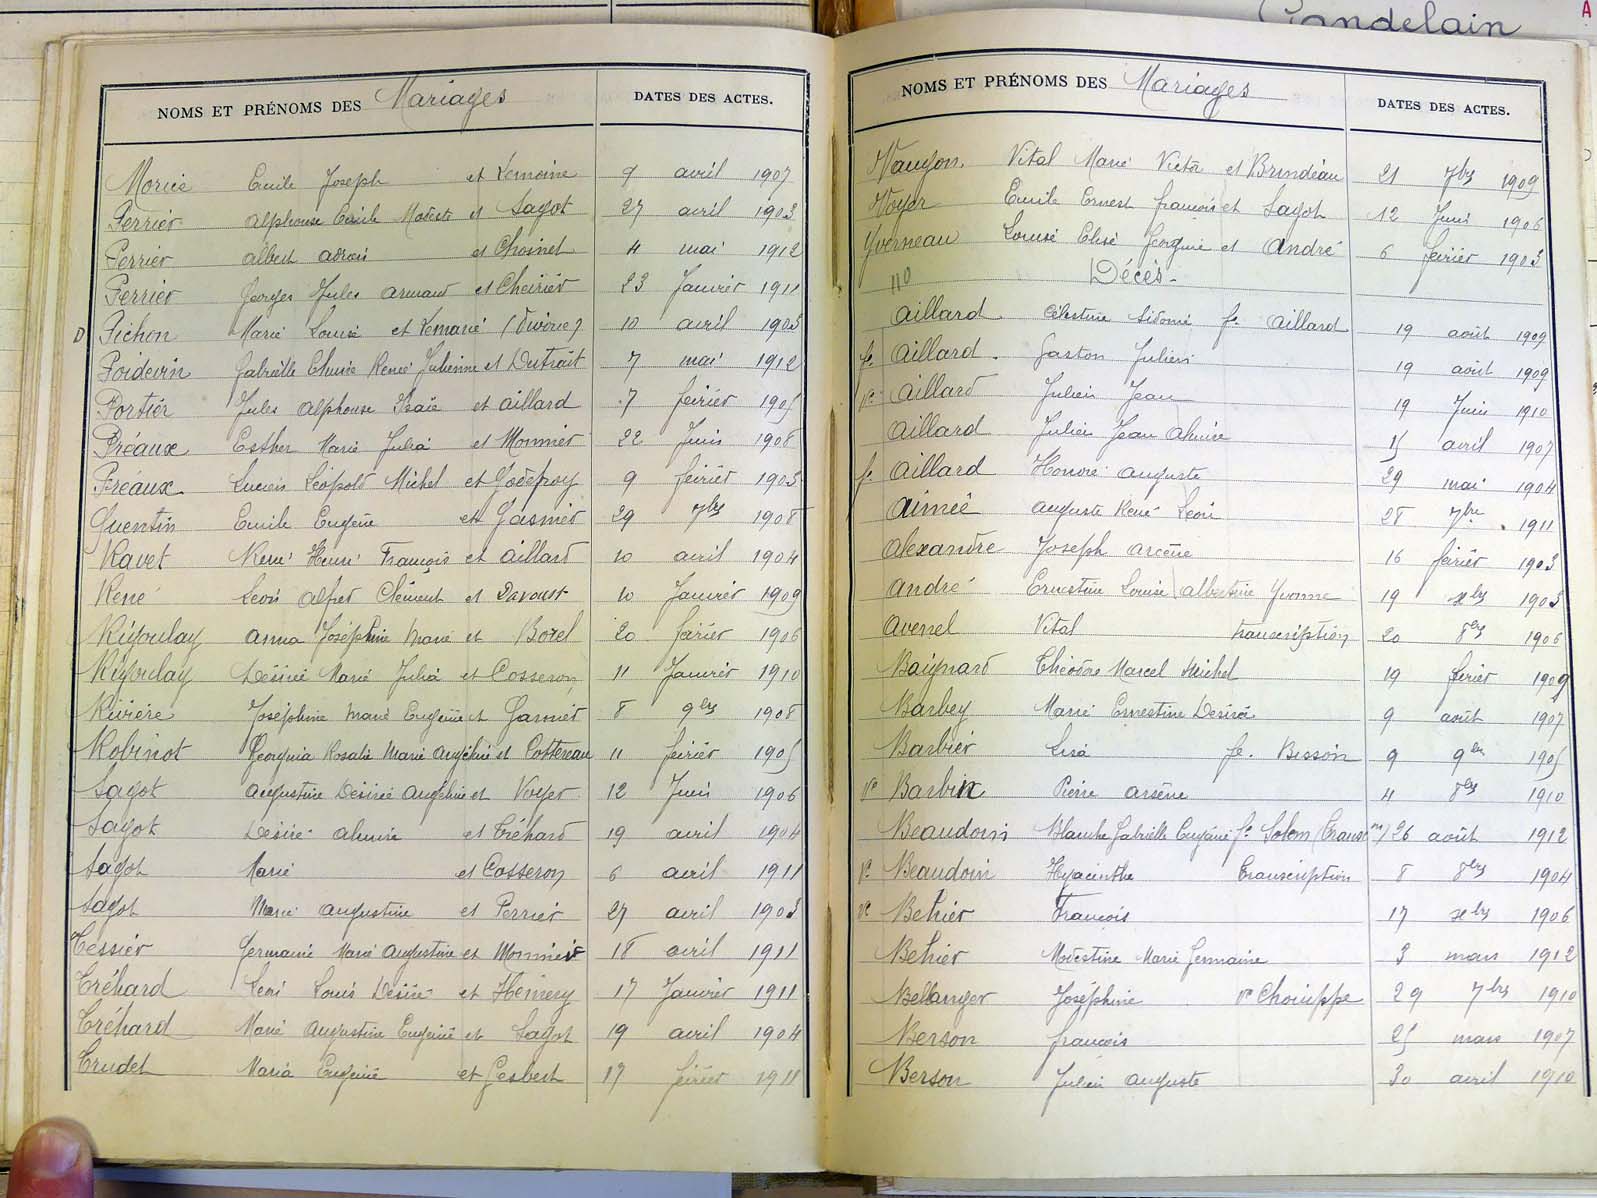 Candelain
A
NOMS ET PRÉNOMS DES Mariages DATES DES ACTES.
Morice Emile Joseph et Lemoine 9 avril 1907
Perrier Alphonse Emile Modeste et Sagot 27 avril 1903
Perrier Albert et Choinet 4 mai 1912
Perrier Georges Jules Armand et 23 Janvier 1911
D Pichon Marie Louise et Lemarié (Divorce) 10 avril 1903
Poidevin Gabrielle Renée Julienne et Dutrait 7 mai 1912
Portier Jules Alphonse Isaïe et Aillard 7 février 1905
Préaux Esther Marie Julia et Monnier 22 Juin 1908
Préaux Lucien Léopold Michel et Godefroy 9 février 1903
Quentin Emile Eugène et Gasnier 29 7brs 1908
Ravet René Henri François et Aillard 10 avril 1904
René Léon Alfred Clément et Davoust 10 Janvier 1909
Rigoulay Anna Joséphine Marie et Borel 20 février 1906
Rigoulay Désirée Marie Julia et Cosseron 11 Janvier 1910
Rivière Joséphine Marie Eugénie et Garnier 8 9brs 1908
Robinot Georgina Rosalie Marie Angéline et Cottereau 11 février 1905
Sagot Augustine Désirée Angéline et Voyer 12 Juin 1906
Sagot Désiré et Tréhard 19 avril 1904
Sagot Marie et Cosseron 6 avril 1911
Sagot Marie Augustine et Perrier 27 avril 1903
Tessier Germaine Marie Augustine et Monnier 18 avril 1911
Tréhard Louis Désiré et Hemery 17 Janvier 1911
Tréhard Marie Augustine Eugénie et Sagot 19 avril 1904
Trudet Maria Eugénie et Gesbert 17 février 1911
NOMS ET PRÉNOMS DES Mariages DATES DES ACTES.
Vaugon Vital Marie Victor et Brindeau 21 7brs 1909
Voyer Emile Ernest François et Sagot 12 Juin 1906
Yverneau Louise Elise et André 6 février 1903
Décès
Aillard Célestine Sidonie fe. Aillard 19 août 1909
fe. Aillard Gaston Julien 19 août 1909
Aillard Julien Jean 19 Juin 1910
Aillard Julien Jean 15 avril 1907
Aillard Honoré Auguste 29 mai 1904
Aimée Auguste René Léon 28 7bre 1911
Alexandre Joseph Arcène 16 février 1903
André Ernestine Louise Albertine Yvonne 19 xbrs 1903
Avenel Vital transcription 20 8brs 1906
Baignard Théodore Marcel Michel 19 février 1909
Barbey Marie Ernestine Désirée 9 août 1907
Barbier Lisa fe. Bisson 9 9bre 1905
Barbin Pierre Arsène 4 8brs 1910
Beaudoin Blanche Gabrielle Eugénie fe Solem 26 août 1912
Beaudoin Hyacinthe Transcription 8 8brs 1904
Behier François 17 xbrs 1906
Behier Modestine Marie Germaine 3 mars 1912
Bellanger Joséphine ve Choinppe 29 7brs 1910
Berson François 25 mars 1907
Berson Julien Auguste 30 avril 1910